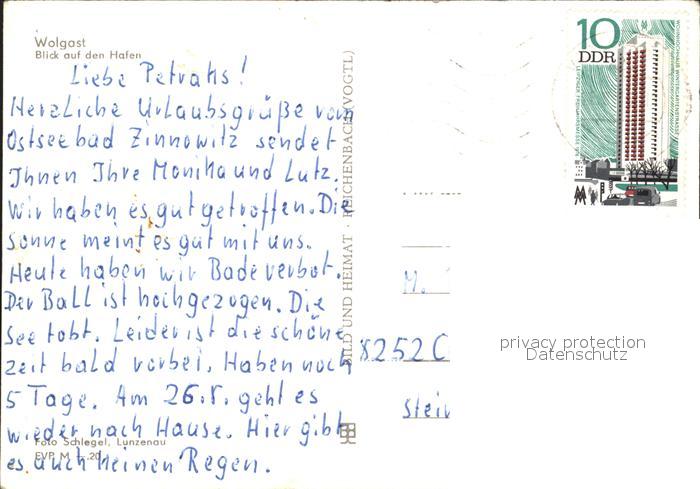 Wolgast
Blick auf den Hafen
Liebe Petrahs!
Herzliche Urlaubsgrüße vom
Ostseebad Zinnowitz sendet
Ihnen Ihre Monika und Lutz.
Wir haben es gut getroffen. Die
Sonne meint es gut mit uns.
Heute haben wir Badeverbot.
Der Ball ist hochgezogen. Die
See tobt. Leider ist die schöne
Zeit bald vorbei. Haben noch
5 Tage. Am 26.8. geht es
wieder nach Hause. Hier gibt
es auch keinen Regen.
Foto Schlegel, Lunzenau
EVP M -.20
BILD UND HEIMAT · REICHENBACH (VOGTL)
10
DDR
LEIPZIGER FRÜHJAHRSMESSE
WOHNHOCHHAUS WINTERGARTENSTRASSE
M.
8252 C
Stein
privacy protection
Datenschutz